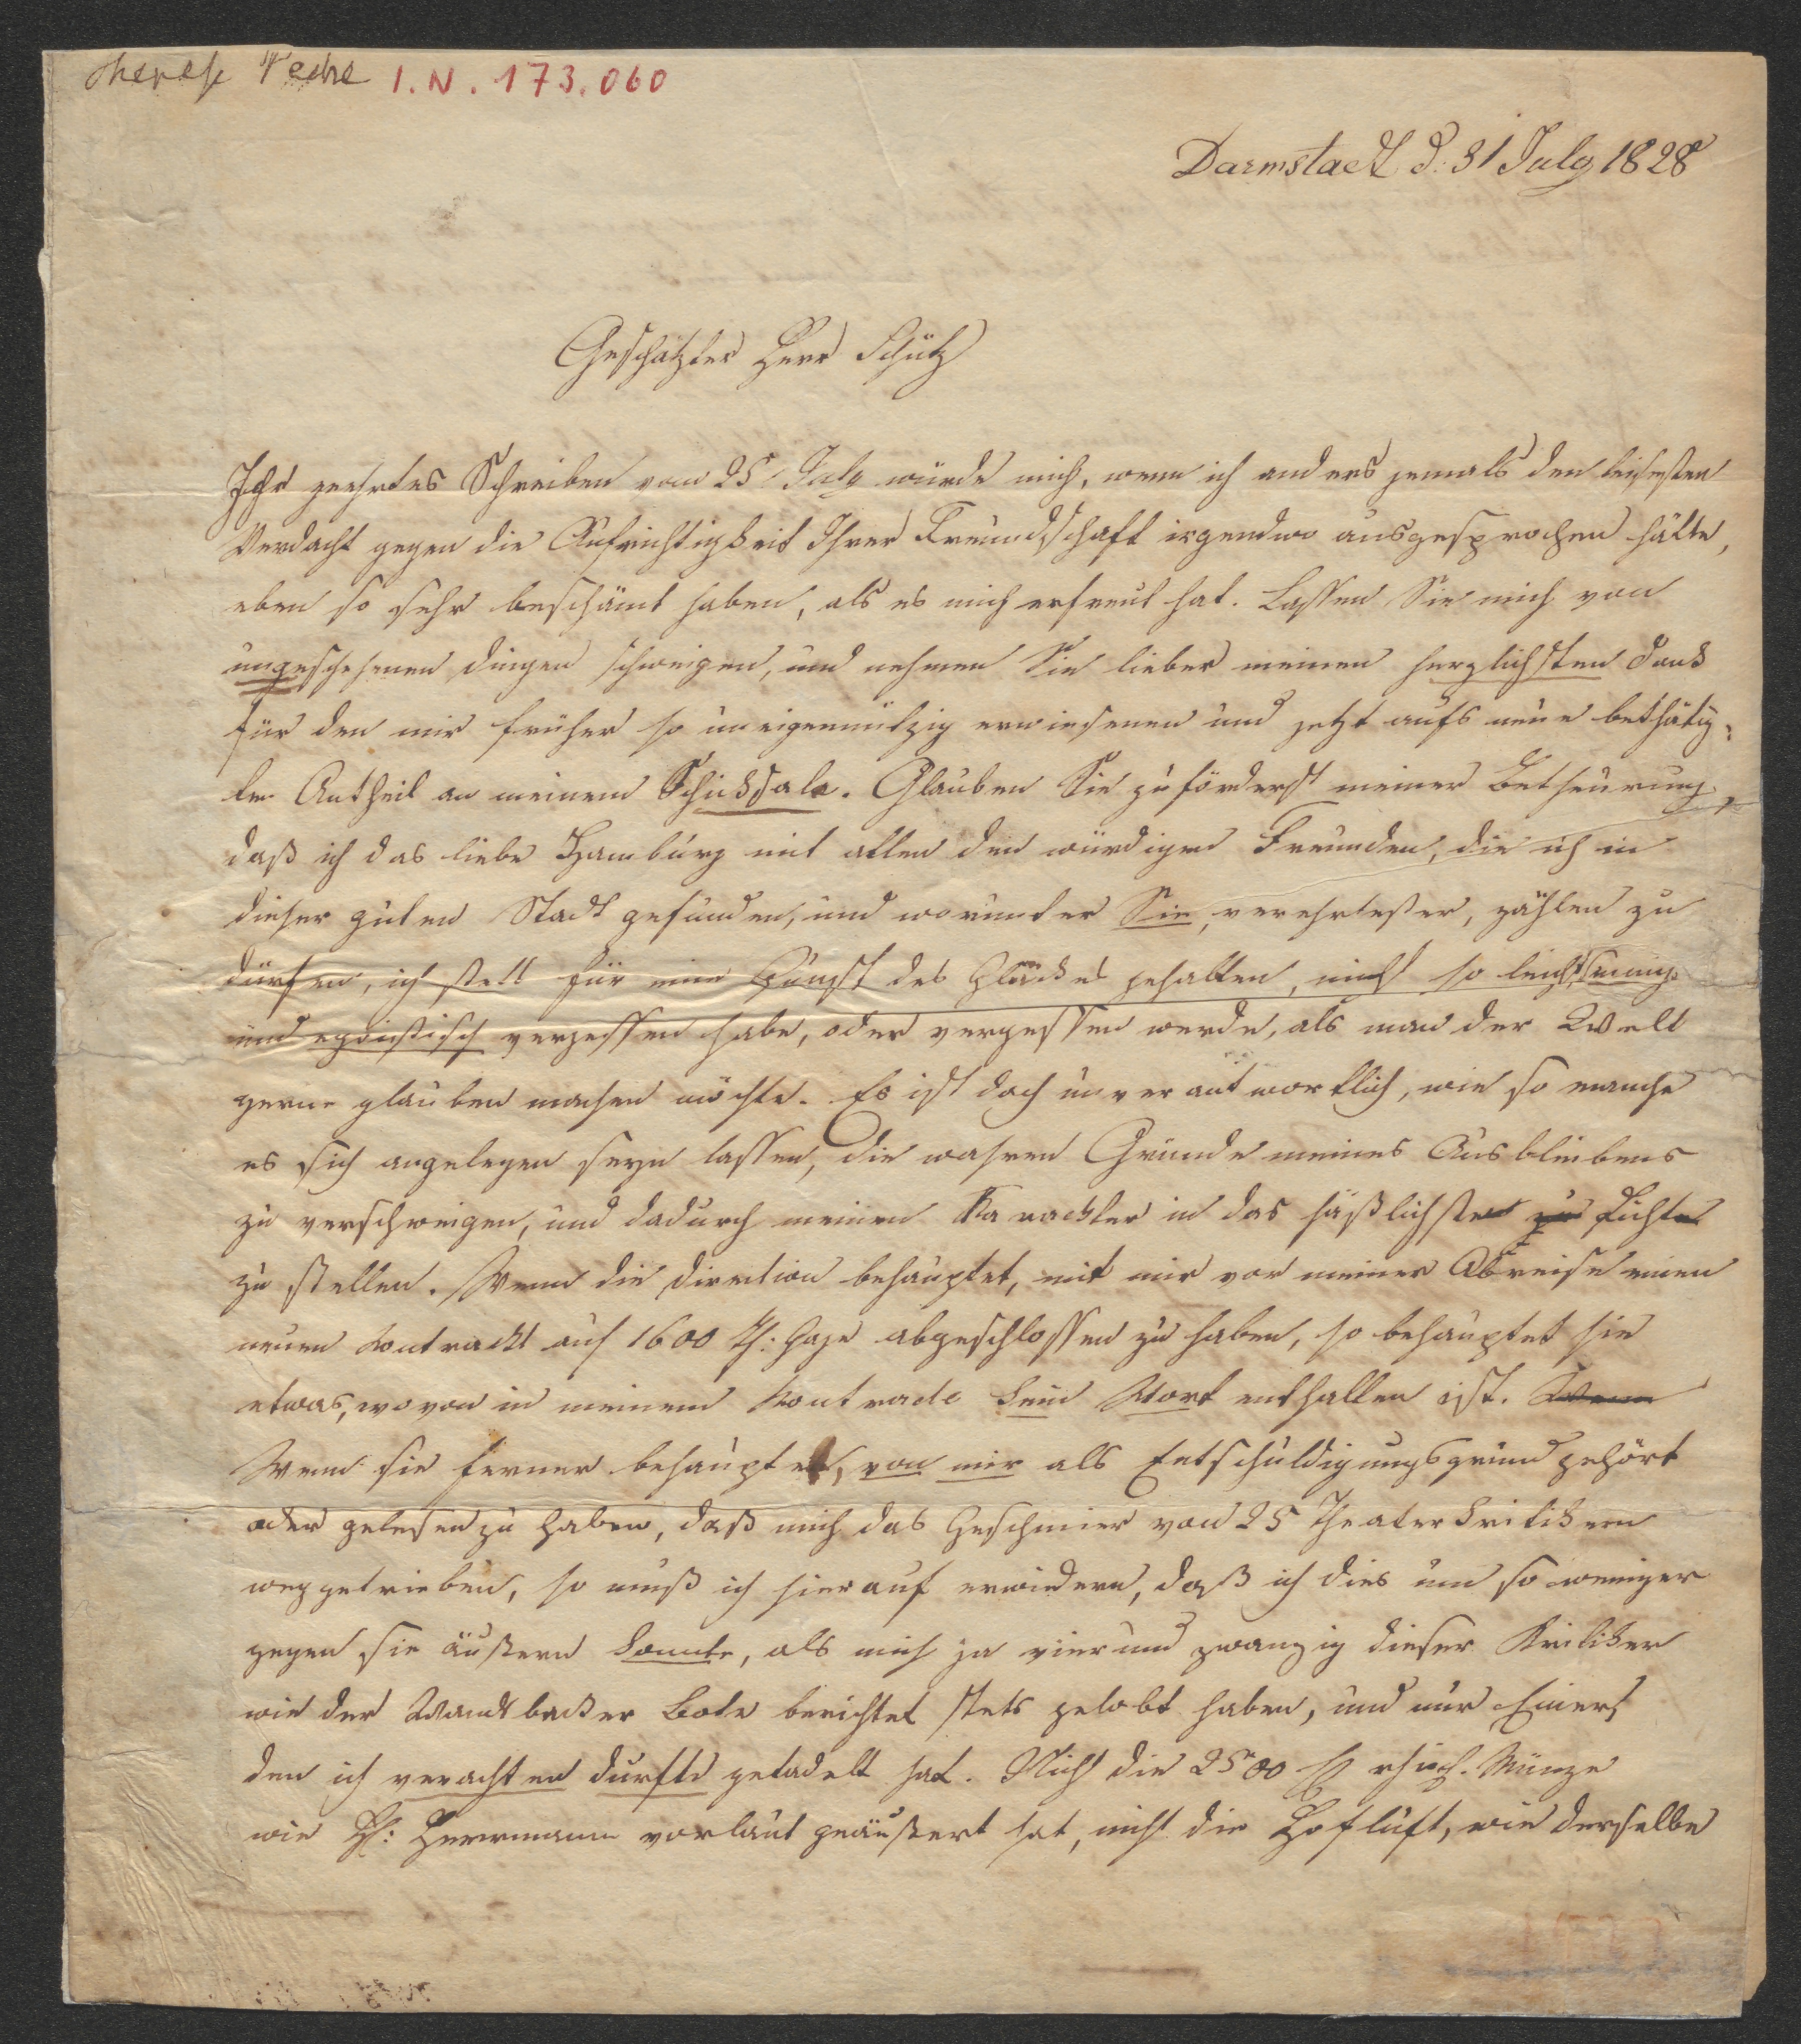 Therese Peche I.N. 173.060
Darmstadt d. 31 July 1828
Geschätzter Herr Schütz
Ihr geehrtes Schreiben vom 25 July würde mich, wenn ich anders jemals den leisesten
Verdacht gegen die Aufrichtigkeit Ihrer Freundschaft irgendwo ausgesprochen hätte,
eben so sehr beschämt haben, als es mich erfreut hat. Lassen Sie mich von
ungeschehenen Dingen schweigen, und nehmen Sie lieber meinen herzlichsten Dank
für den mir früher so uneigennützig erwiesenen und jetzt aufs neue bethätig=
ten Antheil an meinem Schicksale. Glauben Sie zuförderst meiner Betheurung,
daß ich das liebe Hamburg mit allen den würdigen Freunden, die ich in
dieser guten Stadt gefunden, und worunter Sie, verehrtester, zählen zu
dürfen, ich stets für eine Gunst des Glückes gehalten, nicht so leichtsinnig
und egoistisch vergessen habe, oder vergessen werde, als man der Welt
gerne glauben machen möchte. Es ist doch unverantwortlich, wie so manche
es sich angelegen seyn lassen, die wahren Gründe meines Ausbleibens
zu verschweigen, und dadurch meinen Karackter in das häßlichste zu Licht
zu stellen. Wenn die Direction behauptet, mit mir vor meiner Abreise einen
neuen Contrackt auf 1600 Th: Gage abgeschlossen zu haben, so behauptet sie
etwas, wovon in meinem Kontracte kein Wort enthalten ist. Wenn
Wenn sie ferner behauptet, von mir als Entschuldigungsgrund gehört
oder gelesen zu haben, daß mich das Geschmier von 25 Theaterkritikern
weggetrieben, so muß ich hierauf erwiedern, daß ich dies um so weniger
gegen sie äußern konnte, als mich ja vier und zwanzig dieser Kritiker
wie der Wandsbecker Bote berichtet stets gelobt haben, und nur Einer,
den ich verachten durfte getadelt hat. Nicht die 2500 fl rhein. Münze
wie H: Herrmann vorlaut geäußert hat, nicht die Hofluft, wie derselbe